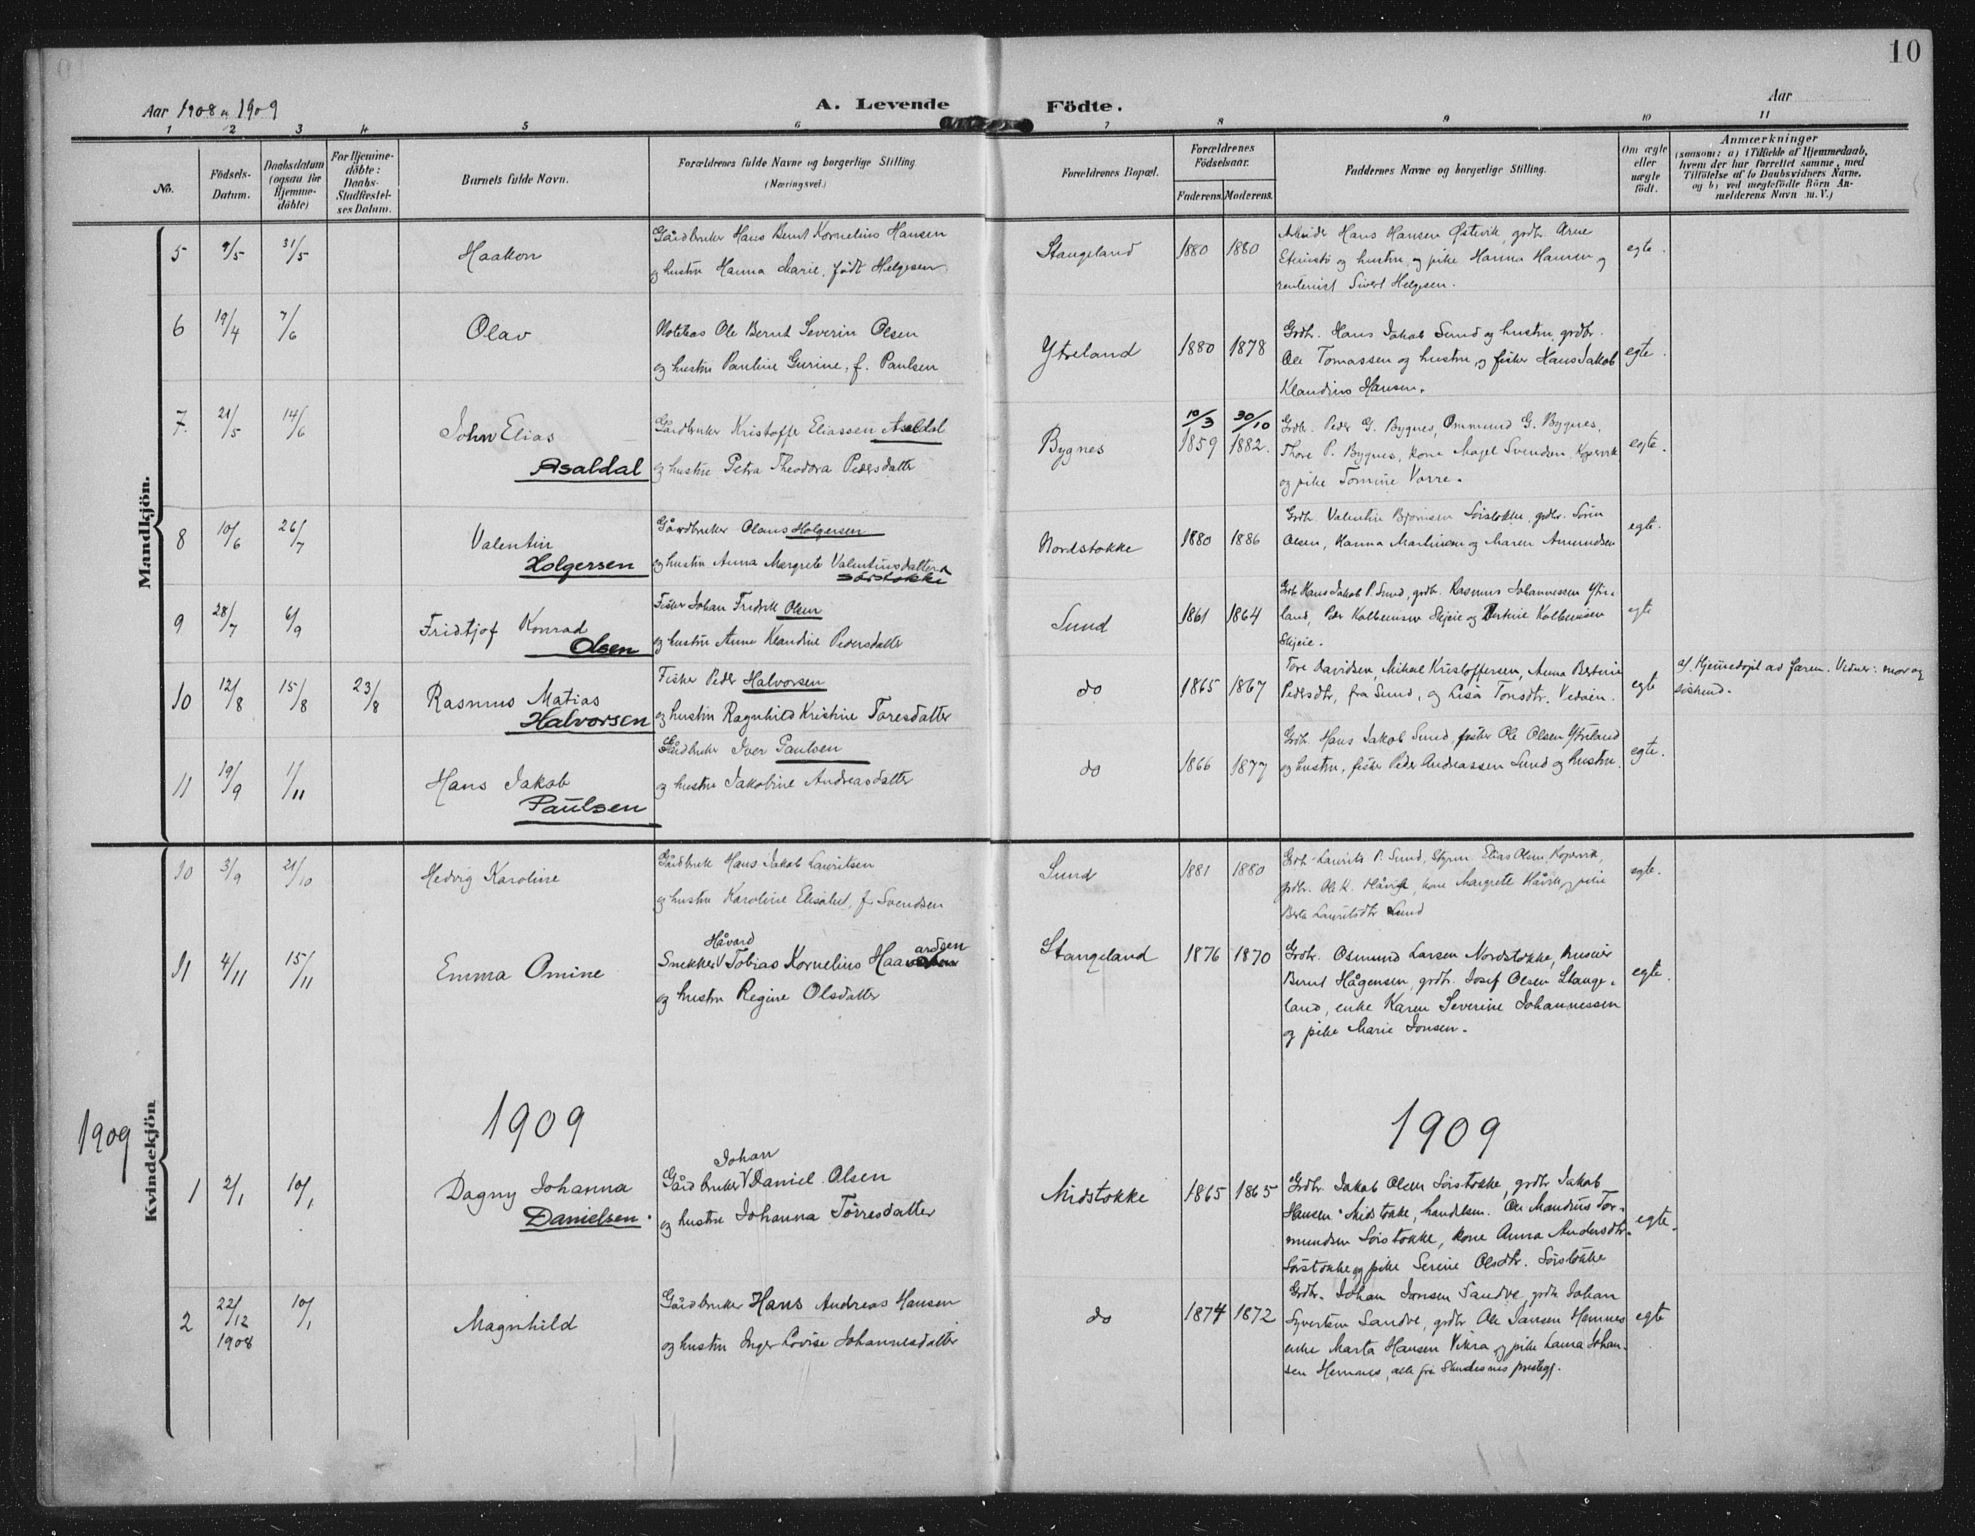 10
Aar 1908 & 1909
A. Levende Födte.
Aar
1 2 3 4 5 6 7 8 9 10 11
No.
Födsels-Datum.
Daabsdatum (ogsaa for Hjemme-döbte)
For Hjemme-döbte: Daabs-Stadfæstel-ses Datum.
Barnets fulde Navn.
Forældrenes fulde Navne og borgerlige Stilling. (Næringsvei.)
Forældrenes Bopæl.
Forældrenes Födselsaar.
Faderens. Moderens.
Faddernes Navne og borgerlige Stilling.
Om ægte eller uægte födt.
Anmærkninger
(saasom: a) i Tilfælde af Hjemmedaab,
hvem der har forrettet samme, med
Tilföielse af to Daabsvidners Navne,
og b) ved uegtefödte Börn An-
melderens Navn m. V.)
Mandkjön.
5 9/5 31/5 Haakon
Gårdbruker Hans Bernt Kornelius Hansen
og hustru Hanna Marie, født Helgesen
Stangeland 1880 1880
Arbeider Hans Hansen Østevik, grdbr. Arne
og hustru, og pike Hanna Hansen og
Sivert Helgesen.
egte.
6 19/4 7/6 Olav
Ole Bernt Severin Olsen
og hustru Pauline Gurine, f. Paulsen
Ytreland 1880 1878
Grdbr. Hans Jakob Sund og hustru, grdbr.
Ole Tomassen og hustru og fisker Hans Jakob
Klaudius Hansen.
egte.
7. 21/5 14/6 John Elias
Asaldal
Gårdbruker Kristoffer Eliassen Asaldal
og hustru Petra Theodora Pedersdatter
Bygnes 10/3 1859 30/10 1882.
Grdbr. Peder G. Bygnes, Ommund G. Bygnes,
Thore P. Bygnes, kone Magel Svendsen, Kopervik
og pike Tomine Vorre.
egte.
8 10/6 26/7 Valentin
Holgersen
Gårdbruker Olaus Holgersen
og hustru Anna Margrete Valentinsdatter
Sørstokke
Nordstokke 1880 1886
Grdbr. Valentin Bjørnsen Sørstokke, grdbr. Sørin
Olsen, Hanna Martinsen og Maren Amundsen
egte.
9 28/7 6/9 Fridtjof Konrad
Olsen
Fisker Johan Fredrik Olsen
og hustru Anne Klaudine Pedersdatter
Sund 1861 1864
Grdbr Hans Jakob P. Sund, grdbr. Rasmus Johannessen Ytre-
land, Peder Kolbeinsen Skjeie og Bertine Kolbeinsen
Skjeie.
egte
10 12/8 15/8 23/8 Rasmus Matias
Halvorsen
Fisker Peder Halvorsen
og hustru Ragnhild Kristine Toresdatter
do 1865 1867
Tore Davidsen, Mikal Kristoffersen, Anna Bertine
Pedersdtr, fra Sund, og Lisa Tonsdtr. Vedøien.
egte
a/. Hjemedøpt av faren. Vidner: mor og
søskend.
11 19/9 1/11 Hans Jakob
Paulsen
Gårdbruker Iver Paulsen
og hustru Jakobine Andreasdatter
do 1866 1877
Grdbr. Hans Jakob Sund, fisker Ole Olsen Ytreland
og hustru, fisker Peder Andreassen Sund og hustru.
egte.
Kvindekjön
10 3/9 21/10 Hedvig Karoline
Gårdbruk Hans Jakob Lauritsen
og hustru Karoline Elisabet, f. Svendsen
Sund 1881 1880
Grdbr Laurits P. Sund, Styrm. Elias Olsen, Kopervik,
grdbr. Ole K. Håvik, kone Margrete Håvik, og pike
Berta Lauritsdtr Sund
egte.
11 4/11 15/11 Emma Omine
Håvard
Snekker V Tobias Kornelius Haavardsen
og hustru Regine Olsdatter
Stangeland 1876 1870
Grdbr. Osmund Larsen Nordstokke,
Bernt Hågensen, grdbr. Josef Olsen Stange-
land, enke Karen Severine Johannessen
og pike Marie Jonsen.
egte.
1909
1909 1909
1 2/1 10/1 Dagny Johanna
Danielsen.
Johan
Gårdbruker V Daniel Olsen
og hustru Johanna Tørresdatter
Midstokke 1865 1865
Grdbr. Jakob Olsen Sørstokke, grdbr Jakob
Hansen Midstokke, handlsm. Ole Mandius Tor-
mundsen Sørstokke, kone Anna Andersdtr.
Sørstokke og pike Serine Olsdtr. Sørstokke
egte.
2 22/12 1908 10/1 Magnhild
Gårdbruker Hans Andreas Hansen
og hustru Inger Lovise Johannesdatter
do 1874 1872
Grdbr. Johan Jonsen Sandve, grdbr Johan
Syvertsen Sandve, grdbr Ole Jansen Hemnes
enke Marta Hansen Vikra og pike Laura Johan-
sen Hemnes, alle fra Skudesnes prestegj.
egte